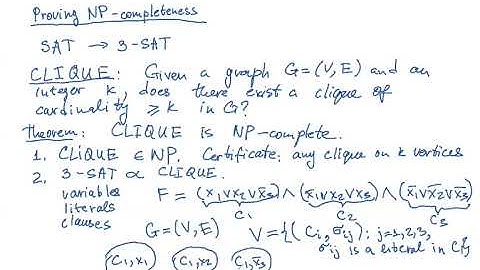 Proving NP-completeness
SAT → 3-SAT
CLIQUE: Given a graph G=(V,E) and an
integer k, does there exist a clique of
cardinality ≥ k in G?
Theorem: CLIQUE is NP-complete.
1. CLIQUE ∈ NP. Certificate: any clique on k vertices
2. 3-SAT ∝ CLIQUE.
variables
literals
clauses
F = (x₁∨x₂∨x̄₃) ∧ (x̄₁∨x₂∨x₃) ∧ (x̄₁∨x̄₂∨x̄₃)
C₁ C₂ C₃
G=(V,E) V={(Cᵢ, σᵢⱼ): j=1,2,3,
σᵢⱼ is a literal in Cᵢ}
C₁,x₁ C₁,x₂ C₁,x̄₃